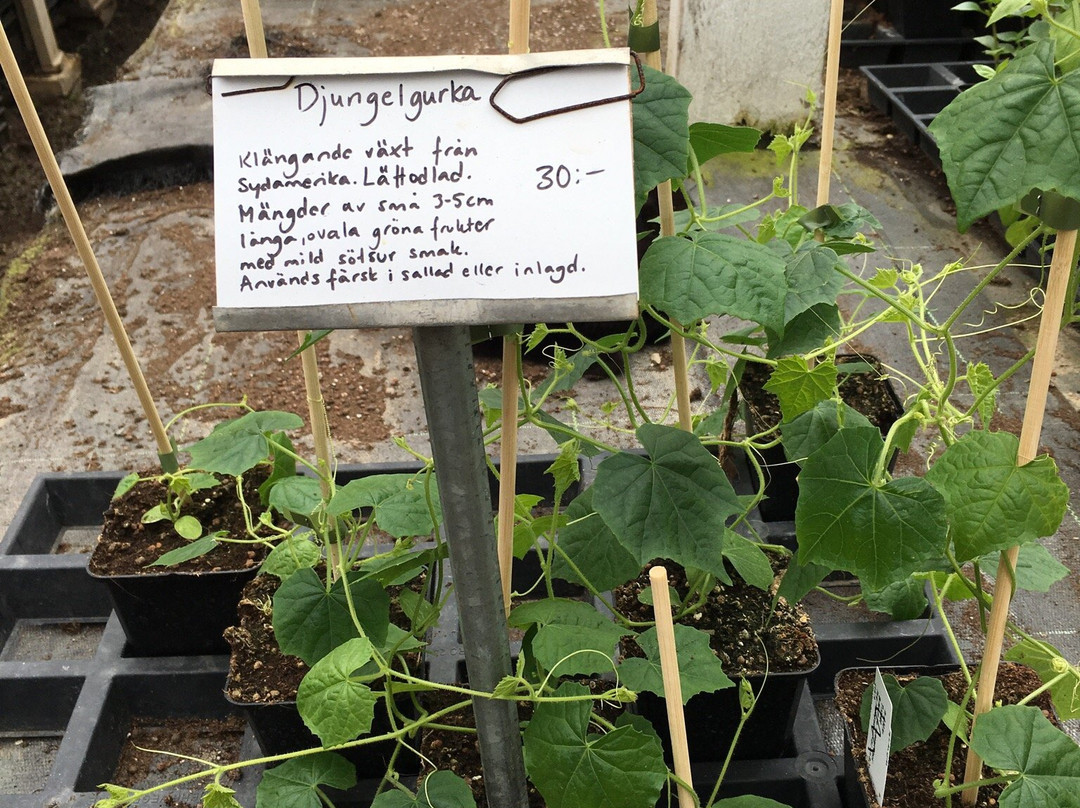 Djungelgurka
Klängande växt från
Sydamerika. Lättodlad.
30:-
Mängder av små 3-5cm
långa, ovala gröna frukter
med mild sötsur smak.
Används färst i sallad eller inlagd.